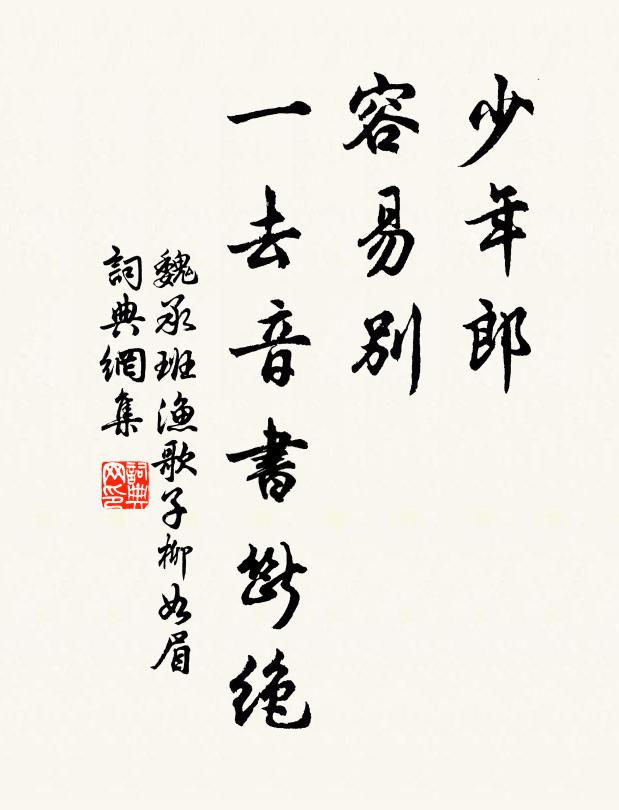 少年郎
容易別
一去音書斷絕
魏承班漁歌子柳如眉
詞典網集
詞典网印